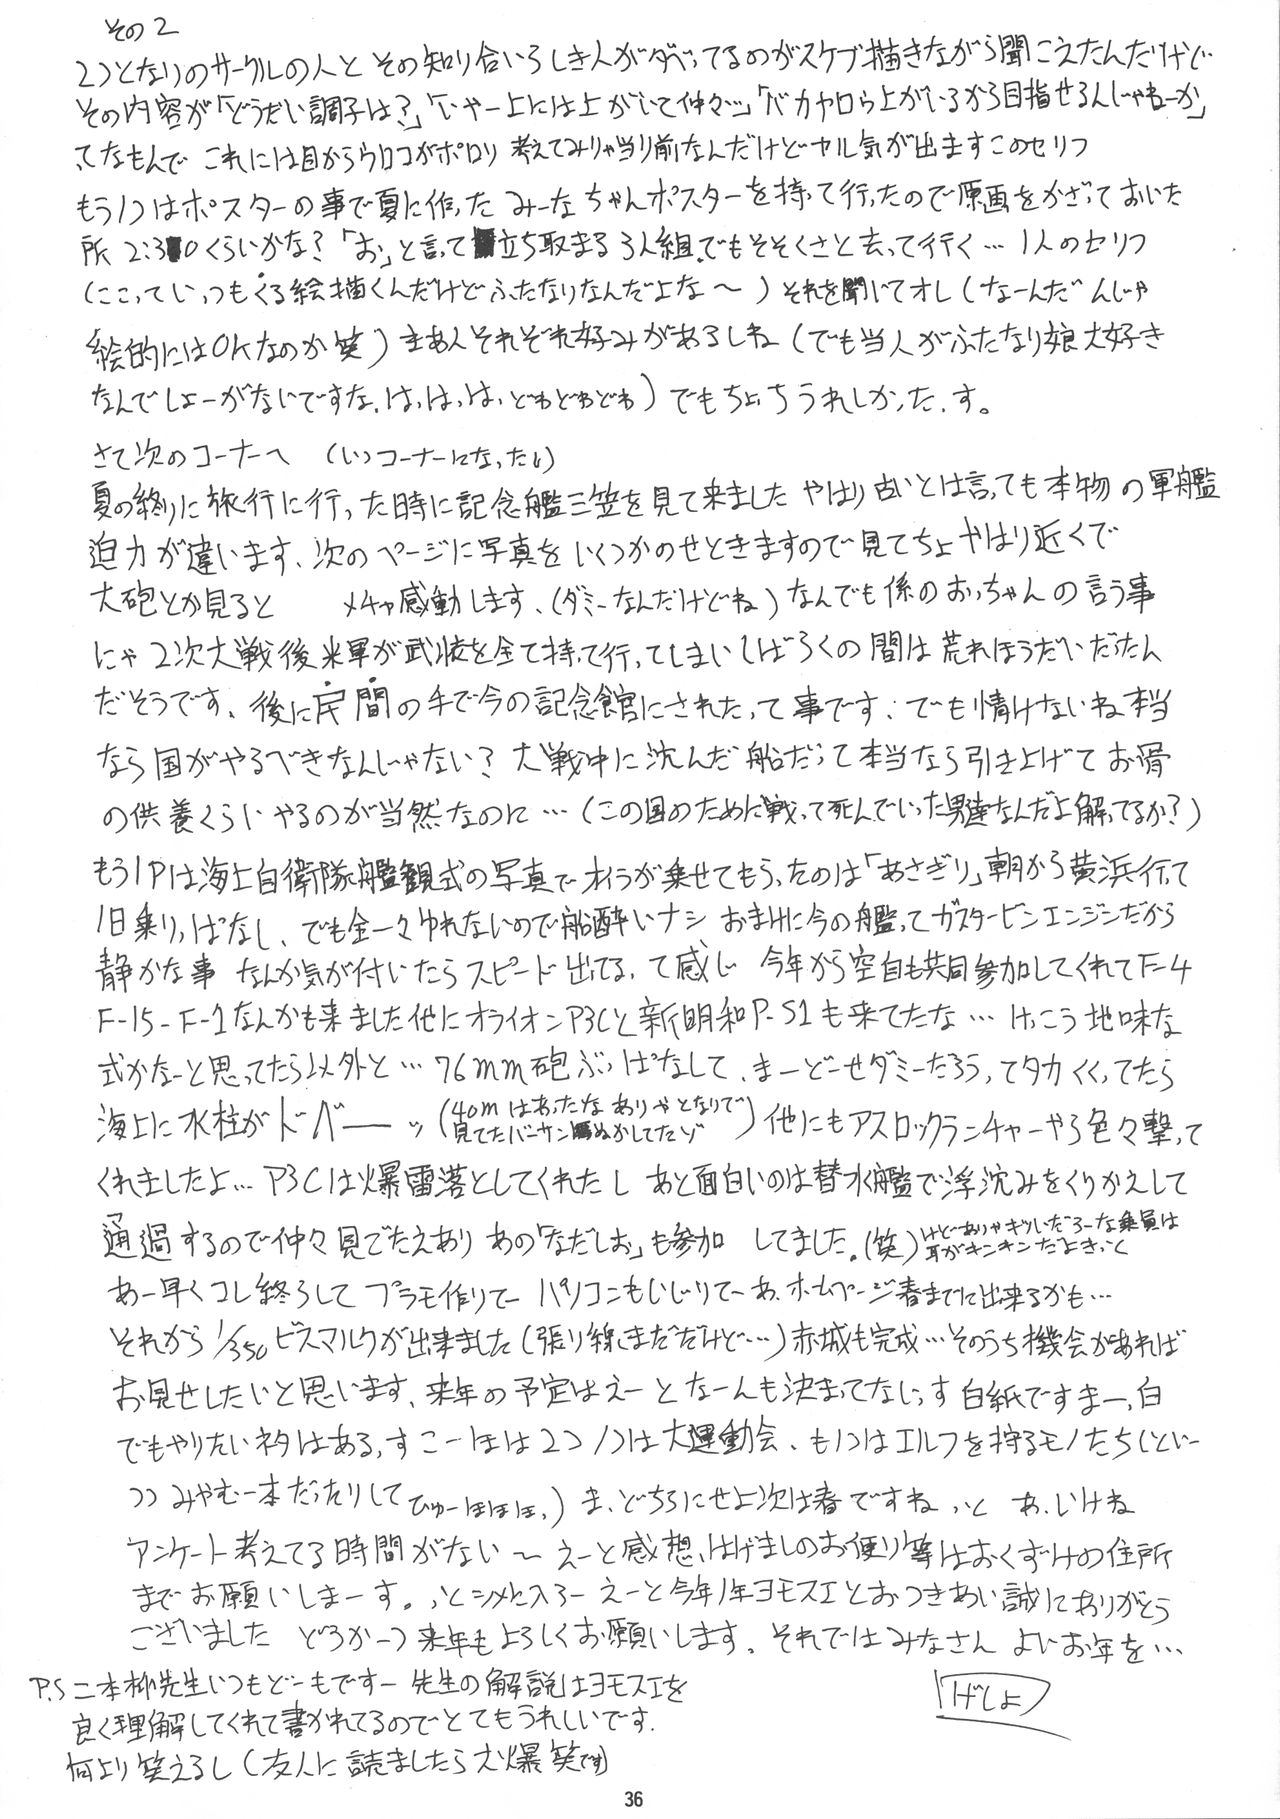 その2
2つとなりのサークルの人と その知り合いらしき人がダベってるのがスケブ描きながら聞こえたんだけど
その内容が「どうだい調子は?」「いやー上には上がいて仲々…」「バカヤロウ上がいるから目指せるんじゃねーか」
ってなもんで これには目からウロコがポロリ 考えてみりゃ当り前なんだけどヤル気が出ますこのセリフ
もう1つはポスターの事で夏に作った みーなちゃんポスターを持って行ったので原画をかざっておいた
所 2:30くらいかな?「おっ」と言って立ち止まる3人組でもそそくさと去って行く… 1人のセリフ
(ここっていっつもくる絵描くんだけどふたなりなんだよな〜) それを聞いてオレ (なーんだ んじゃ
絵的にはOKなのか 笑) まあ人それぞれ好みがあるしね (でも当人がふたなり娘大好き
なんでしょーがないですな.はっはっは.どわどわどわ) でもちょっちうれしかったっす。
さて次のコーナーへ (いつコーナーになったい)
夏の終りに旅行に行った時に記念艦三笠を見て来ました やはり古いとは言っても本物の軍艦
迫力が違います、次のページに写真をいくつかのせときますので見てちょ やはり近くで
大砲とか見ると メチャ感動します、(ダミーなんだけどね) なんでも係のおっちゃんの言う事
にゃ 2次大戦後米軍が武装を全て持って行ってしまいしばらくの間は荒れほうだいだったん
だそうです、後に民間の手で今の記念館にされたって事です、でも情けないね本当
なら国がやるべきなんじゃない? 大戦中に沈んだ船だって本当なら引き上げてお骨
の供養くらいやるのが当然なのに… (この国のために戦って死んでいった男達なんだよ解ってるか?)
もう1Pは海上自衛隊艦観式の写真でオイラが乗せてもらったのは「あさぎり」朝から横浜行って
1日乗りっぱなし、でも全々ゆれないので船酔いナシ おまけに今の艦ってガスタービンエンジンだから
静かな事 なんか気が付いたらスピード出てるって感じ 今年から空自も共同参加してくれてF-4
F-15-F-1なんかも来ました他にオライオンP3Cと新明和P-S1も来てたな… けっこう地味な
式かなーと思ってたら以外と… 76mm砲ぶっぱなして、まーどーせダミーだろうってタカくくってたら
海上に水柱がドバーーッ (40mはあったな ありゃとなりで
見てたバーサンぬかしてたゾ) 他にもアスロックランチャーやら色々撃って
くれましたよ… P3Cは爆雷落としてくれたし あと面白いのは替水艦で浮沈みをくりかえして
通過するので仲々見ごたえあり あの「なだしお」も参加 してました。(笑) けどありゃキツいだろーな乗員は
耳がキンキンだよきっと
あー早くコレ終らして プラモ作りてー パソコンもいじりてーあ、ホームページ春までに出来るかも…
それから1/350ビスマルクが出来ました (張り線まだだけど…) 赤城も完成… そのうち機会があれば
お見せしたいと思います、来年の予定はえーと なーんも決まってないっす 白紙ですまーっ白
でもやりたいネタはあるっす こーほは2つ 1つは大運動会、も1つはエルフを狩るモノたち (とい
つつみやむー本だったりして ひゅーほほほっ) ま、どちらにせよ次は春ですねっと あ、いけね
アンケート考えてる時間がない〜 えーと感想、はげましのお便り等はおくずけの住所
までお願いしまーす。っとシメに入ろー えーと今年1年ヨモスエとおつきあい誠にありがとう
ございました どうか一つ来年もよろしくお願いします、それではみなさん よいお年を…
げしょ
P.S 二本柳先生いつもどーもですー 先生の解説はヨモスエを
良く理解してくれて書かれてるのでとてもうれしいです.
何より笑えるし (友人に読ましたら大爆笑です)
36